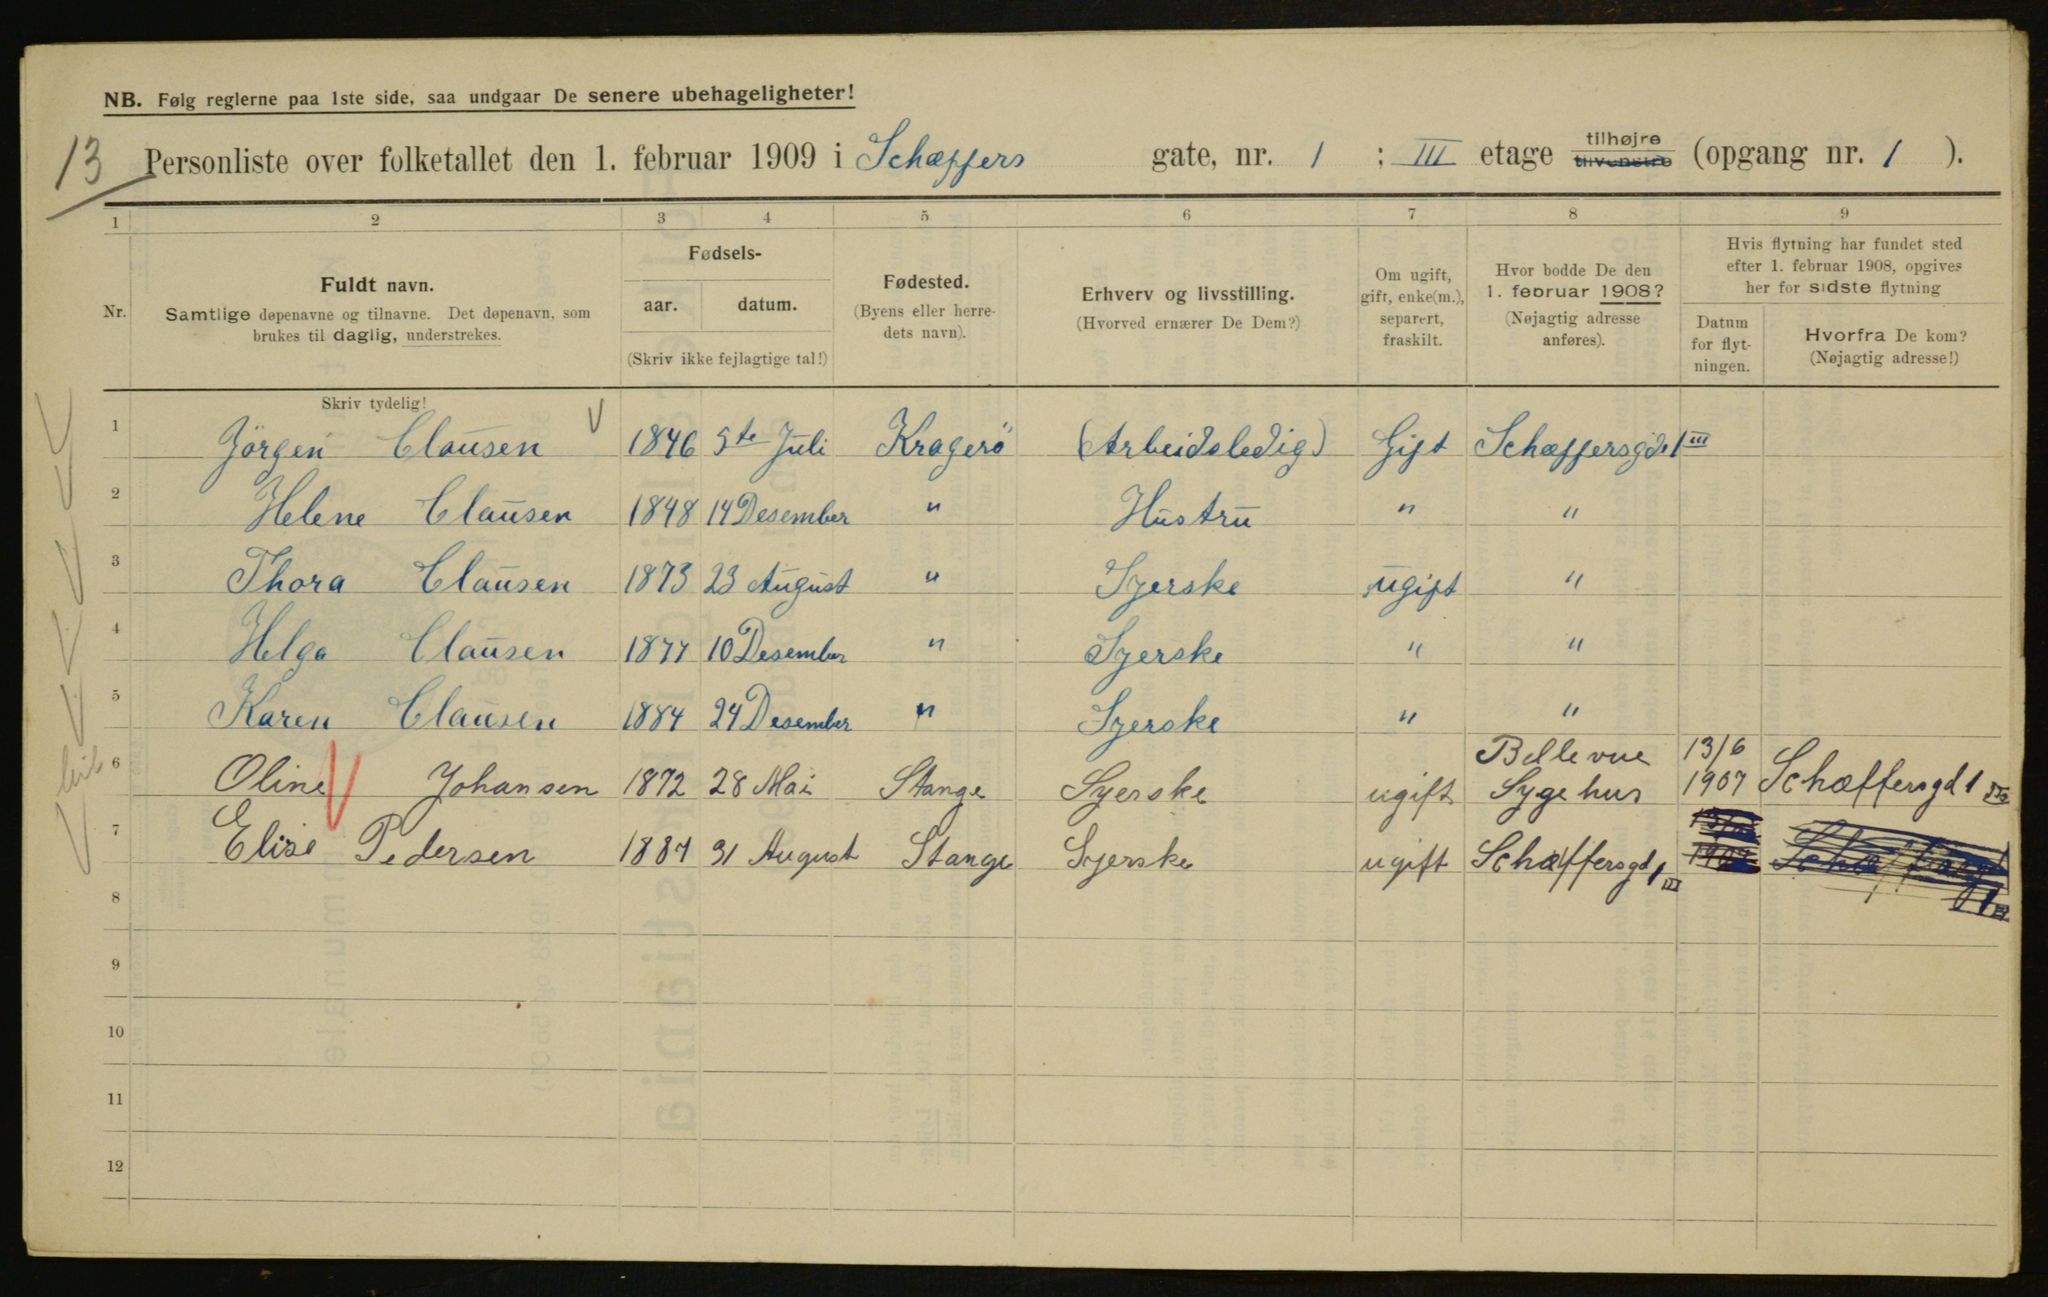 NB. Følg reglerne paa 1ste side, saa undgaar De senere ubehageligheter!
13
Personliste over folketallet den 1. februar 1909 i Schæffers gate, nr. 1 ; III etage tilhøjre tilvenstre (opgang nr. 1 ).
1 2 3 4 5 6 7 8 9
Nr.
Fuldt navn.
Samtlige døpenavne og tilnavne. Det døpenavn, som
brukes til daglig, understrekes.
Fødsels-
aar. datum.
(Skriv ikke fejlagtige tal!)
Fødested.
(Byens eller herre-
dets navn).
Erhverv og livsstilling.
(Hvorved ernærer De Dem?)
Om ugift,
gift, enke(m.),
separert,
fraskilt.
Hvor bodde De den
1. februar 1908?
(Nøjagtig adresse
anføres).
Hvis flytning har fundet sted
efter 1. februar 1908, opgives
her for sidste flytning
Datum
for flyt-
ningen.
Hvorfra De kom?
(Nøjagtig adresse!)
Skriv tydelig!
1 Jörgen Clausen 1846 5te Juli Kragerö (Arbeidsledig) Gift Schæffersgde 1 III
2 Helene Clausen 1848 14 Desember " Hustru " "
3 Thora Clausen 1873 23 August " Syerske ugift "
4 Helga Clausen 1877 10 Desember " Syerske " "
5 Karen Clausen 1884 24 Desember " Syerske " "
6 Oline Johansen 1872 28 Mai Stange Syerske ugift Bellevue Sygehus 13/6 1907 Schæffersgd 1
7 Elise Pedersen 1887 31 August Stange Syerske ugift Schæffersgd 1 III 1907
8
9
10
11
12